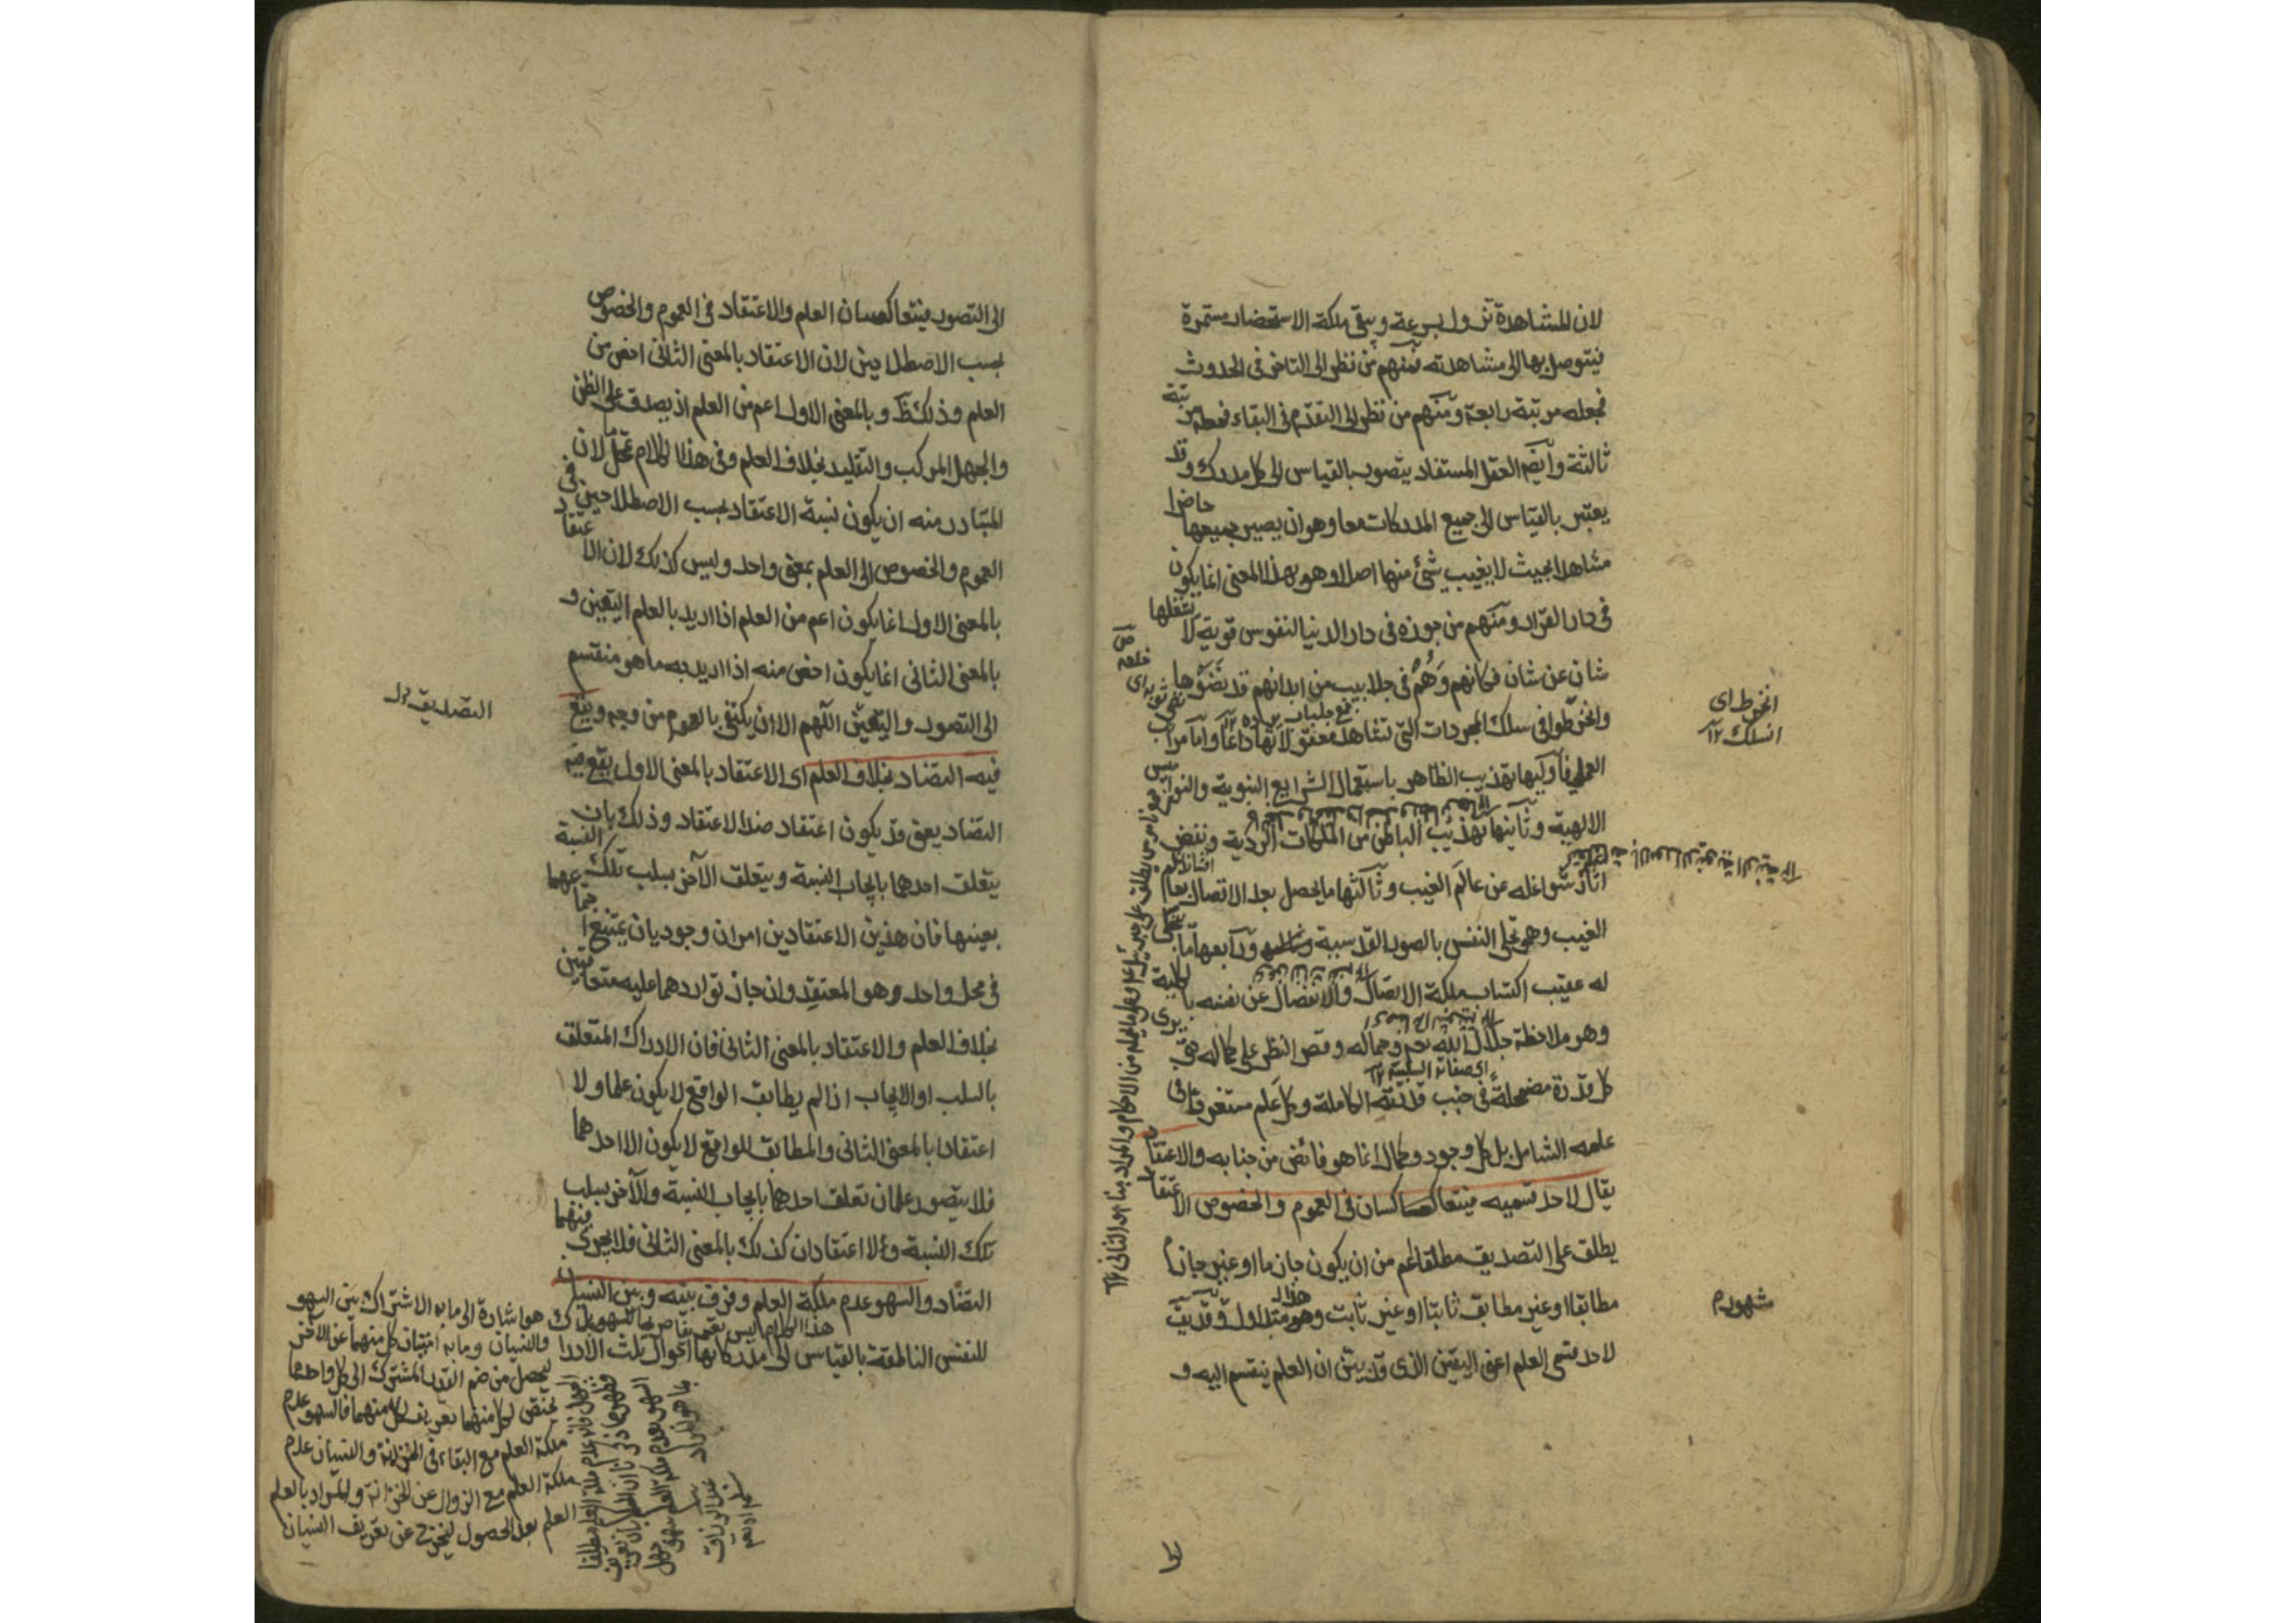 لان المشاهدة تزول بسرعة ويبقى ملكة الاستحضار مستمرة
فيتوصل بها الى مشاهدته فمنهم من نظر الى التاخر فى الحدوث
فجعله مرتبة رابعة ومنهم من نظر الى التقدم فى البقاء فجعله مرتبة
ثالثة وايضا العقل المستفاد يتصور بالقياس الى كل مدرك وقد
يعتبر بالقياس الى جميع المدركات معا وهو ان يصير جميعها حاضرا
مشاهدا بحيث لا يغيب شئ منها اصلا وهو بهذا المعنى انما يكون
فى دار القرار ومنهم من جوزه فى دار الدنيا لنفوس قوية لا يشغلها
شان عن شان فكانهم وهم فى جلابيب من ابدانهم قد نضوها
وانخرطوا فى سلك المجردات التى تشاهد معقولاتها دائما واما مراتب
العملى فاوليها تهذيب الظاهر باستعمال الشرايع النبوية والنواميس
الالهية وثانيتها تهذيب الباطن من الملكات الردية ونقض
اثار شواغله عن عالم الغيب وثالثتها ما يحصل بعد الاتصال بعالم
الغيب وهو تجلى النفس بالصور القدسية ورابعها ما يتجلى
له عقيب اكتساب ملكة الاتصال والانفصال عن نفسه بالكلية
وهو ملاحظة جلال الله وجماله وقصر النظر على كماله حتى يرى
كل قدرة مضمحلة فى جنب قدرته الكاملة وكل علم مستغرقا فى
علمه الشامل بل كل وجود وكمال انما هو فائض من جنابه والاعتقاد
يقال لاحد قسميه فيتعاكسان فى العموم والخصوص الاعتقاد
يطلق على التصديق مطلقا اعم من ان يكون جازما او غير جازم
مطابقا او غير مطابق ثابتا او غير ثابت وهذا متداول وقد يق
لاحد قسمى العلم اعنى اليقين الذى قد بين ان العلم ينقسم اليه و
انخرط اى
انسلك ١٢
شهور م
الى التصور فيتعاكسان العلم والاعتقاد فى العموم والخصوص
بحسب الاصطلاحين لان الاعتقاد بالمعنى الثانى اخص من
العلم وذلك ظ وبالمعنى الاول اعم من العلم اذ يصدق على الظن
والجهل المركب والتقليد بخلاف العلم وفى هذا الكلام تمحل لان
المتبادر منه ان يكون نسبة الاعتقاد بحسب الاصطلاحين فى
العموم والخصوص الى العلم بمعنى واحد وليس كذلك لان الاعتقاد
بالمعنى الاول انما يكون اعم من العلم اذا اريد بالعلم اليقين و
بالمعنى الثانى انما يكون اخص منه اذا اريد به ما هو منقسم
الى التصور واليقين اللهم الا ان يكتفى بالعموم من وجه ويقع
فيه التضاد بخلاف العلم اى الاعتقاد بالمعنى الاول يقع فيه
التضاد يعنى قد يكون اعتقاد ضد الاعتقاد وذلك بان
يتعلق احدهما بايجاب النسبة ويتعلق الآخر بسلب تلك النسبة
بعينها فان هذين الاعتقادين امران وجوديان يمتنع اجتماعهما
فى محل واحد وهو المعتقد وان جاز تواردهما عليه متعاقبين
بخلاف العلم والاعتقاد بالمعنى الثانى فان الادراك المتعلق
بالسلب او الايجاب اذا لم يطابق الواقع لا يكون علما ولا
اعتقادا بالمعنى الثانى والمطابق للواقع لا يكون الا احدهما
فلا يتصور علمان تعلق احدهما بايجاب النسبة والآخر بسلب
تلك النسبة ولا اعتقادان كذلك بالمعنى الثانى فلا يجرى فيهما
التضاد والسهو عدم ملكة العلم وفرق بينه وبين النسيان
للنفس الناطقة بالقياس الى مدركاتها احوال ثلث الادراك
التصديق
هو اشارة الى ما به الاشتراك بين السهو
والنسيان وما به امتياز كل منهما عن الآخر
ليحصل من ضم القدر المشترك الى كل واحد مما
يختص لكل منهما تعريف كل منهما فالسهو عدم
ملكة العلم مع البقاء فى الخزانة والنسيان عدم
ملكة العلم مع الزوال عن الخزانة والمراد بالعلم
العلم بعد الحصول ليخرج عن تعريف النسيان